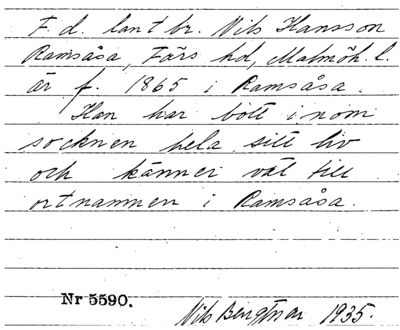 F. d. lantbr. Nils Hansson
Ramsåsa, Färs hd, Malmöh. l.
är f. 1865 i Ramsåsa.
Han har bott inom
socknen hela sitt liv
och känner väl till
ortnamnen i Ramsåsa.
Nr 5590.
Nils Bengtsson 1935.